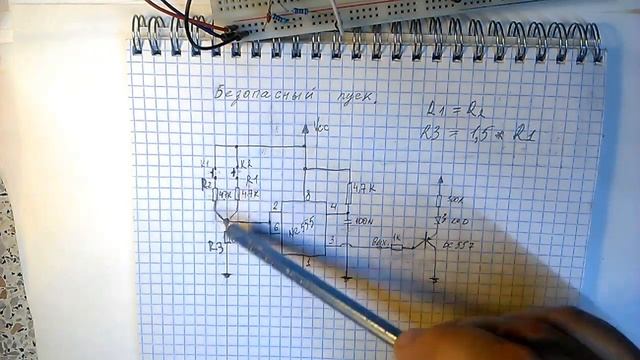 Безопасный пуск.
R1 = R2
R3 = 1,5 * R1
Vcc
K1
K2
R2
R1
47K
47K
4,7K
2
8
4
6
NE555
100N
3
1
R3
1K
LED
BC557